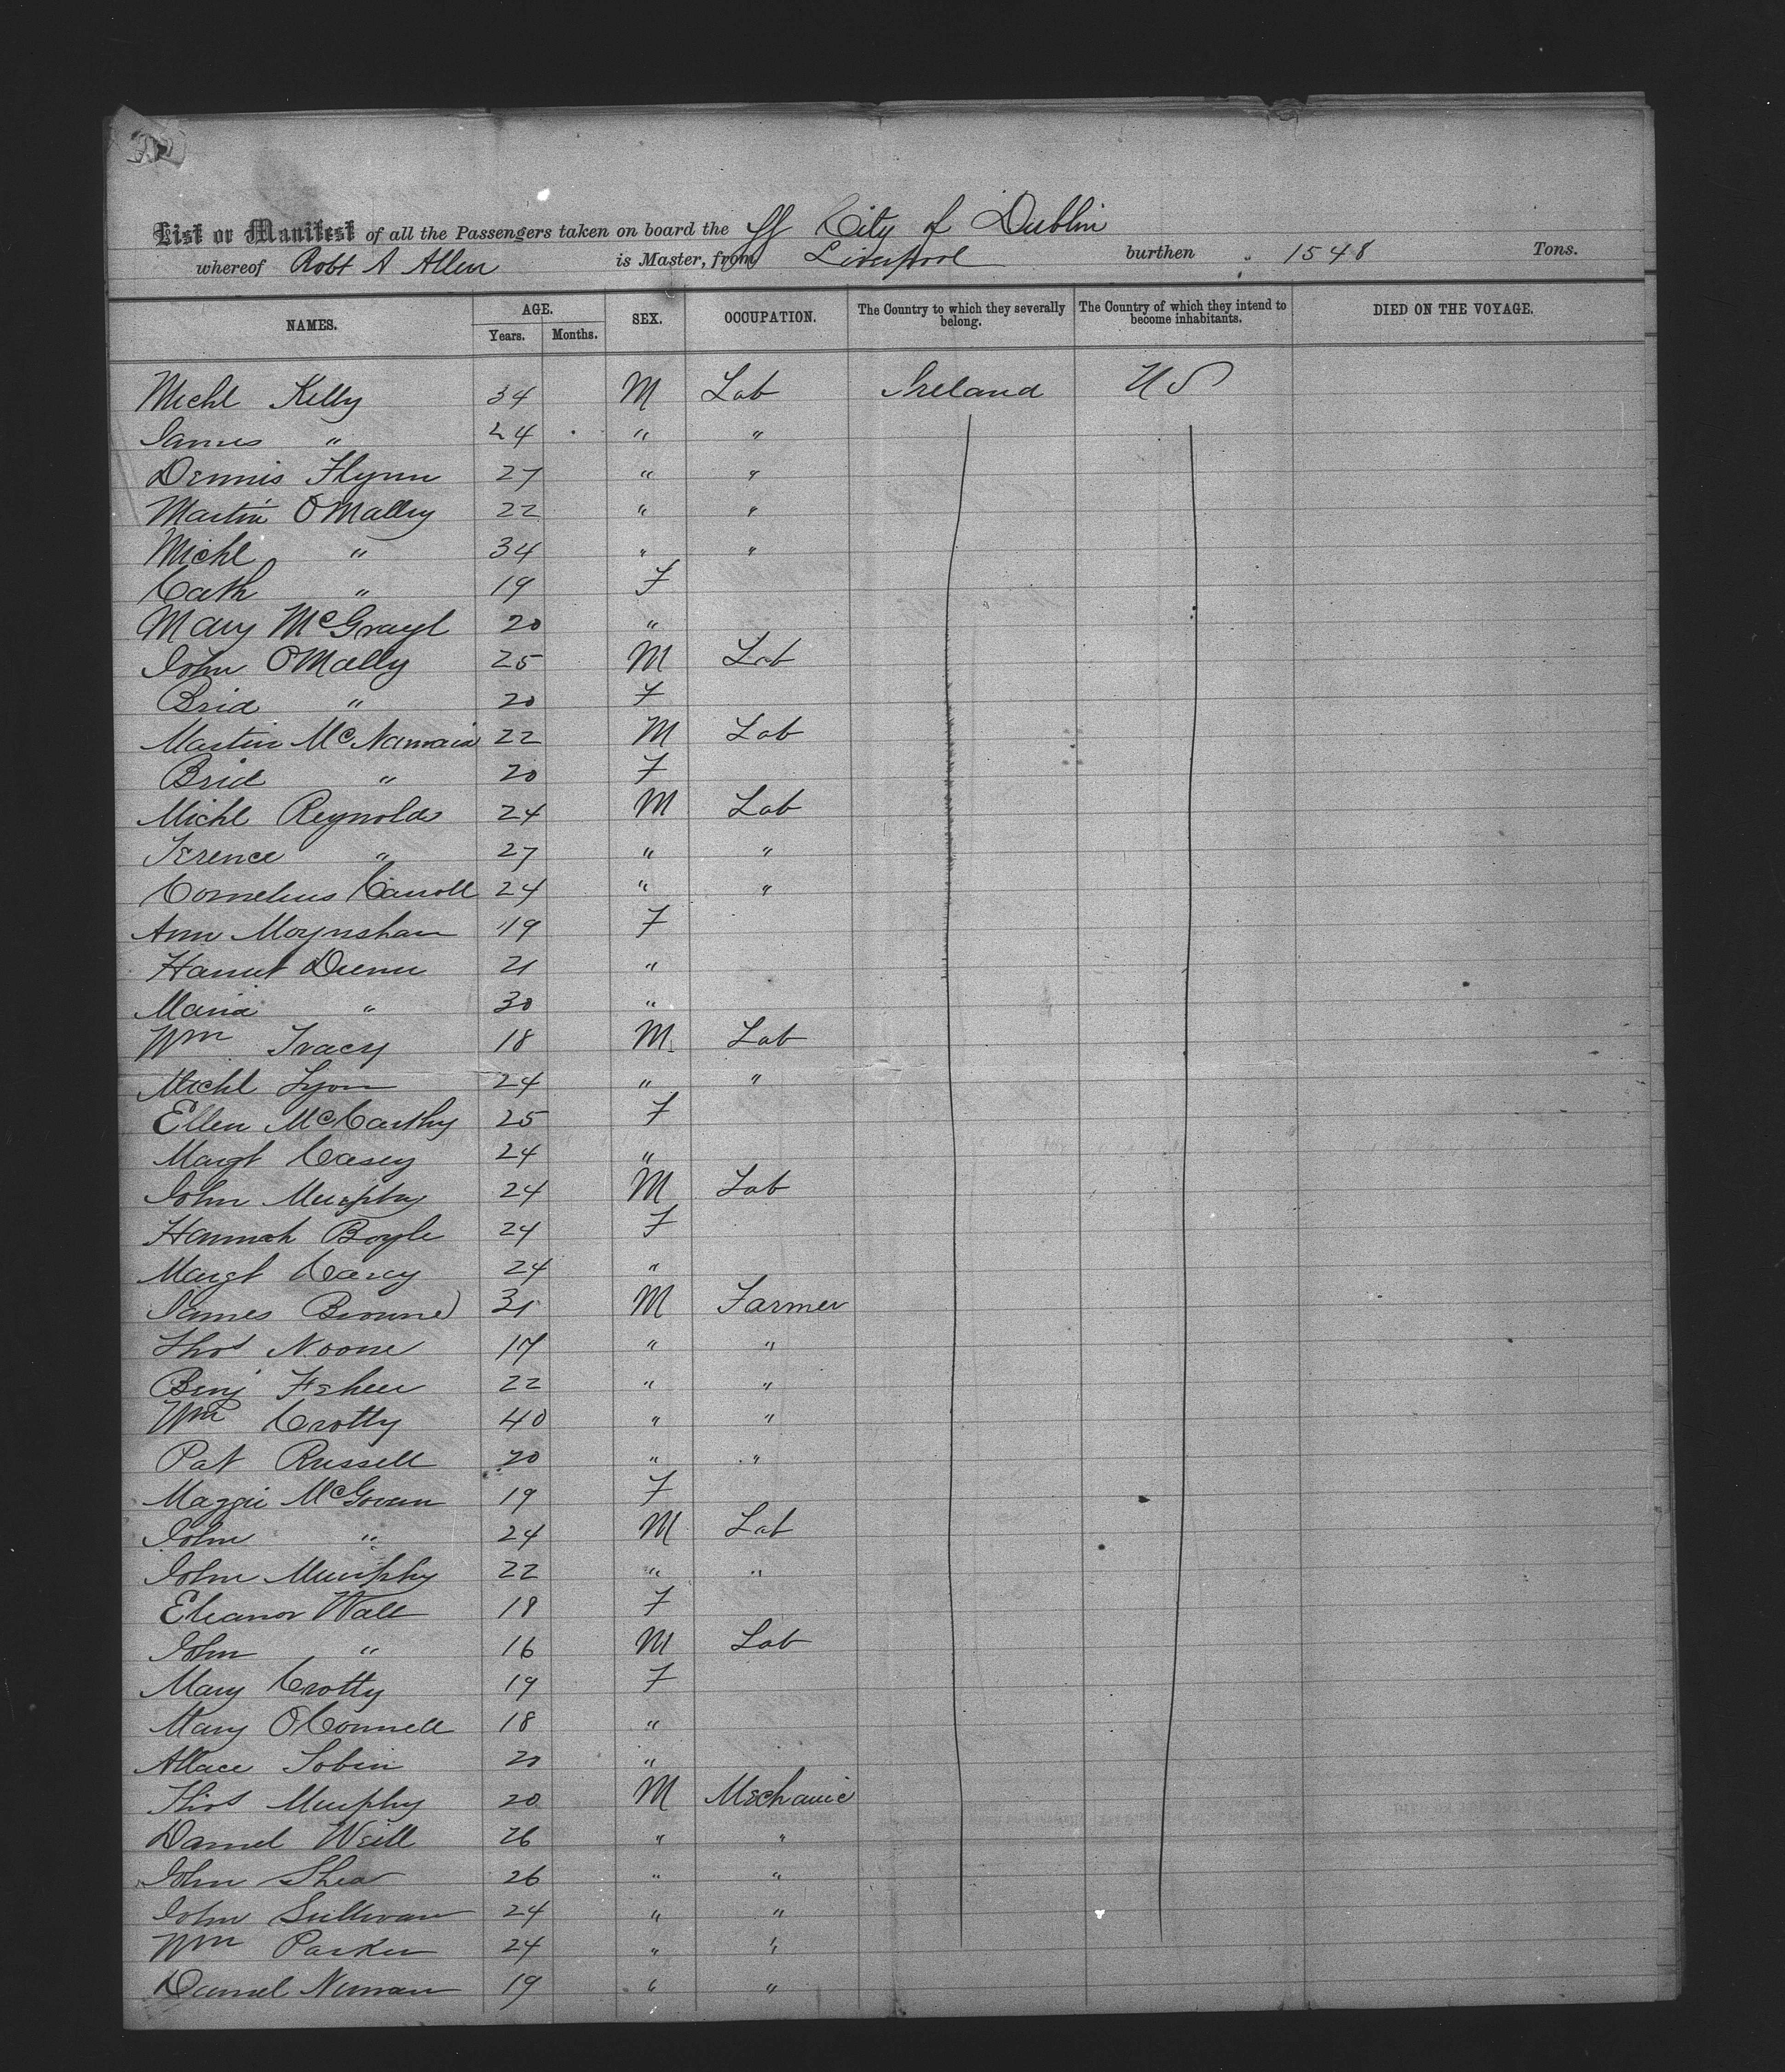 List or Manifest of all the Passengers taken on board the SS City of Dublin
whereof Robt A Allen is Master, from Liverpool burthen 1548 Tons.
NAMES. AGE. Years. Months. SEX. OCCUPATION. The Country to which they severally belong. The Country of which they intend to become inhabitants. DIED ON THE VOYAGE.
Michl Kelly 34 M Lab Ireland US
James " 24 " "
Dennis Flynn 27 " "
Martin OMalley 22 " "
Michl " 34 " "
Cath " 19 F
Mary 20 "
John OMally 25 M Lab
Brid " 20 F
Martin McNamara 22 M Lab
Brid " 20 F
Michl Reynolds 24 M Lab
Terence " 27 " "
Cornelius Carroll 24 " "
Ann Moynahan 19 F
21 "
Maria " 30 "
Wm Tracy 18 M Lab
Michl Lyon 24 " "
Ellen McCarthy 25 F
Margt Casey 24 "
John Murphy 24 M Lab
Hannah Boyle 24 F
Margt 24 "
James Browne 31 M Farmer
Thos Noone 17 " "
Benj 22 " "
Wm Crotty 40 " "
Pat Russell 20 " "
Maggie McGovern 19 F
John " 24 M Lab
John Murphy 22 " "
Eleanor Wall 18 F
John " 16 M Lab
Mary Crotty 19 F
Mary OConnell 18 "
Tobin "
Thos Murphy 20 M Mechanic
Daniel 26 " "
John Shea 26 " "
John Sullivan 24 " "
Wm Parker 24 " "
Daniel 19 " "